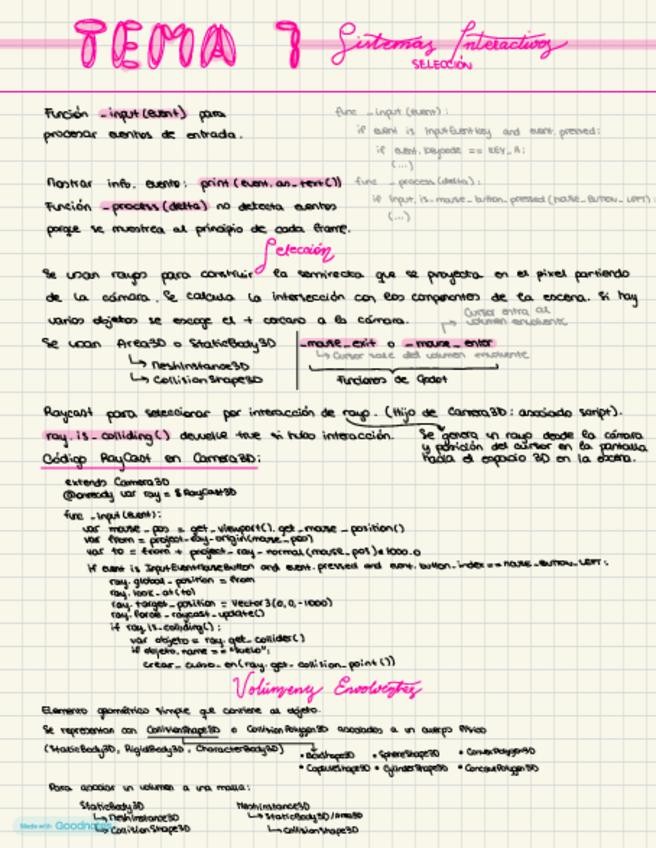 TEMA 7 Sistemas Interactivos
SELECCIÓN
Función _input(event) para
procesar eventos de entrada.
func _input(event):
if event is InputEventKey and event.pressed:
if event.keycode == KEY_A:
(...)
Mostrar info. evento: print(event.as_text())
Función _process(delta) no detecta eventos
porque se muestrea al principio de cada frame.
func _process(delta):
if Input.is_mouse_button_pressed(MOUSE_BUTTON_LEFT):
(...)
Selección
Se usan rayos para construir la semirrecta que se proyecta en el pixel partiendo
de la cámara. Se calcula la intersección con los componentes de la escena. Si hay
varios objetos se escoge el + cercano a la cámara.
Cursor entra al
volumen envolvente
Se usan Area3D o StaticBody3D
↳ MeshInstance3D
↳ CollisionShape3D
_mouse_exit o _mouse_enter
↳ Cursor sale del volumen envolvente
Funciones de Godot
Raycast para seleccionar por interacción de rayo. (Hijo de Camera3D: asociado script).
ray.is_colliding() devuelve true si hubo interacción.
Se genera un rayo desde la cámara
y posición del cursor en la pantalla
hacia el espacio 3D en la escena.
Código RayCast en Camera3D:
extends Camera3D
@onready var ray = $RayCast3D
func _input(event):
var mouse_pos = get_viewport().get_mouse_position()
var from = project_ray_origin(mouse_pos)
var to = from + project_ray_normal(mouse_pos)*1000.0
if event is InputEventMouseButton and event.pressed and event.button_index == MOUSE_BUTTON_LEFT:
ray.global_position = from
ray.look_at(to)
ray.target_position = Vector3(0,0,-1000)
ray.force_raycast_update()
if ray.is_colliding():
var objeto = ray.get_collider()
if objeto.name == "Suelo":
crear_cubo_en(ray.get_collision_point())
Volúmenes Envolventes
Elemento geométrico simple que contiene al objeto.
Se representan con CollisionShape3D o CollisionPolygon3D asociados a un cuerpo físico
(StaticBody3D, RigidBody3D, CharacterBody3D)
• BoxShape3D • SphereShape3D • ConvexPolygon3D
• CapsuleShape3D • CylinderShape3D • ConcavePolygon3D
Para asociar un volumen a una malla:
StaticBody3D
↳ MeshInstance3D
↳ CollisionShape3D
MeshInstance3D
↳ StaticBody3D/Area3D
↳ CollisionShape3D
Made with Goodnotes